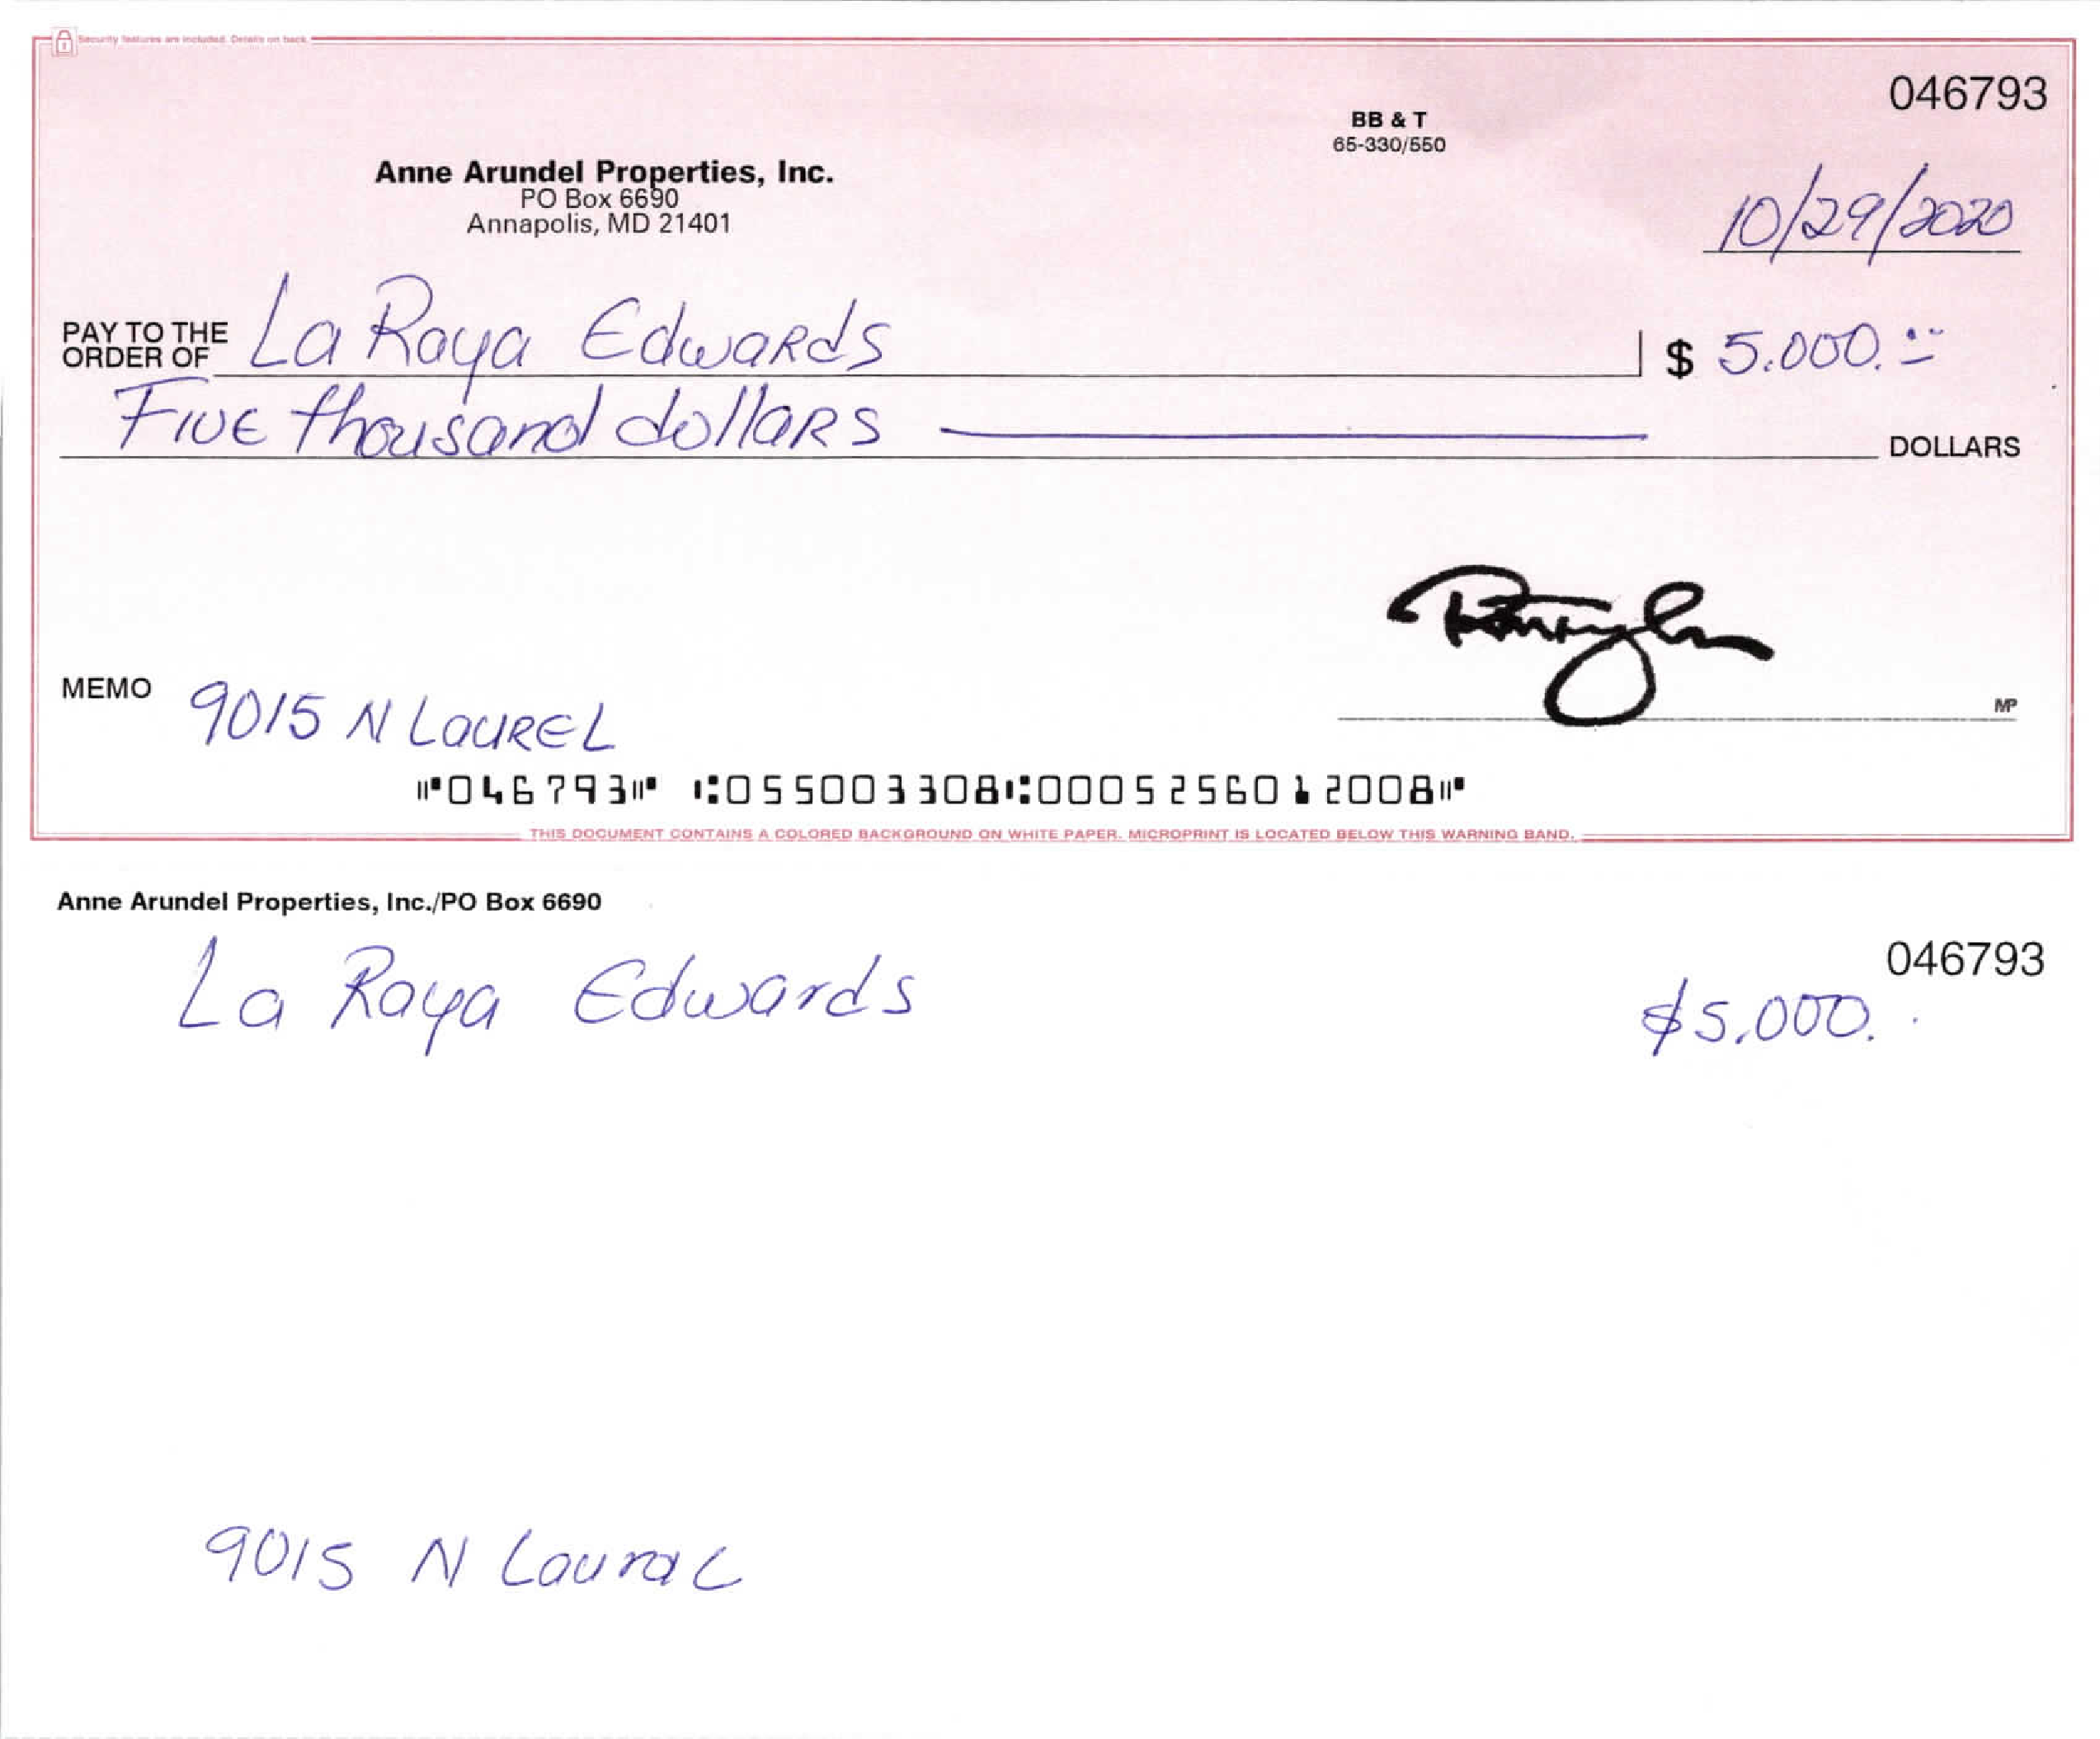 Security features are included. Details on back.
046793
BB & T
65-330/550
Anne Arundel Properties, Inc.
PO Box 6690
Annapolis, MD 21401
10/29/2020
PAY TO THE ORDER OF La Raya Edwards $ 5.000.
Five thousand dollars DOLLARS
MEMO 9015 N Laurel
MP
⑈046793⑈ ⑆055003308⑆0005256012008⑈
THIS DOCUMENT CONTAINS A COLORED BACKGROUND ON WHITE PAPER. MICROPRINT IS LOCATED BELOW THIS WARNING BAND.
Anne Arundel Properties, Inc./PO Box 6690
046793
La Raya Edwards $5,000.
9015 N Laural